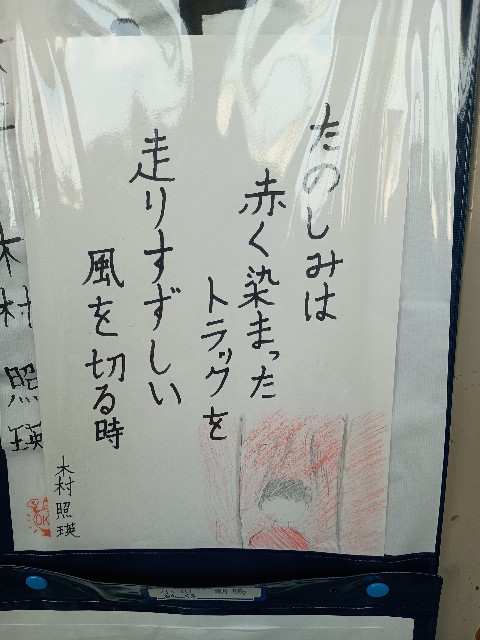 たのしみは
赤く染まった
トラックを
走りすずしい
風を切る時
木村照瑛
OK
木村照瑛